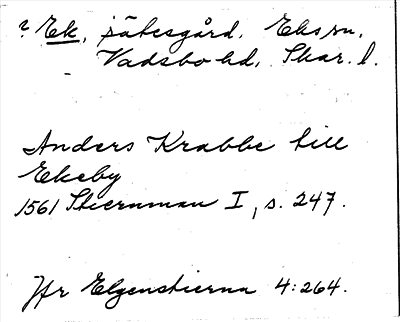 ? Ek, sätesgård, Eks sn,
Vadsbo hd, Skar. l.
Anders Krabbe till
Ekeby
1561 Stiernman I, s. 247.
Jfr Elgenstierna 4:264.